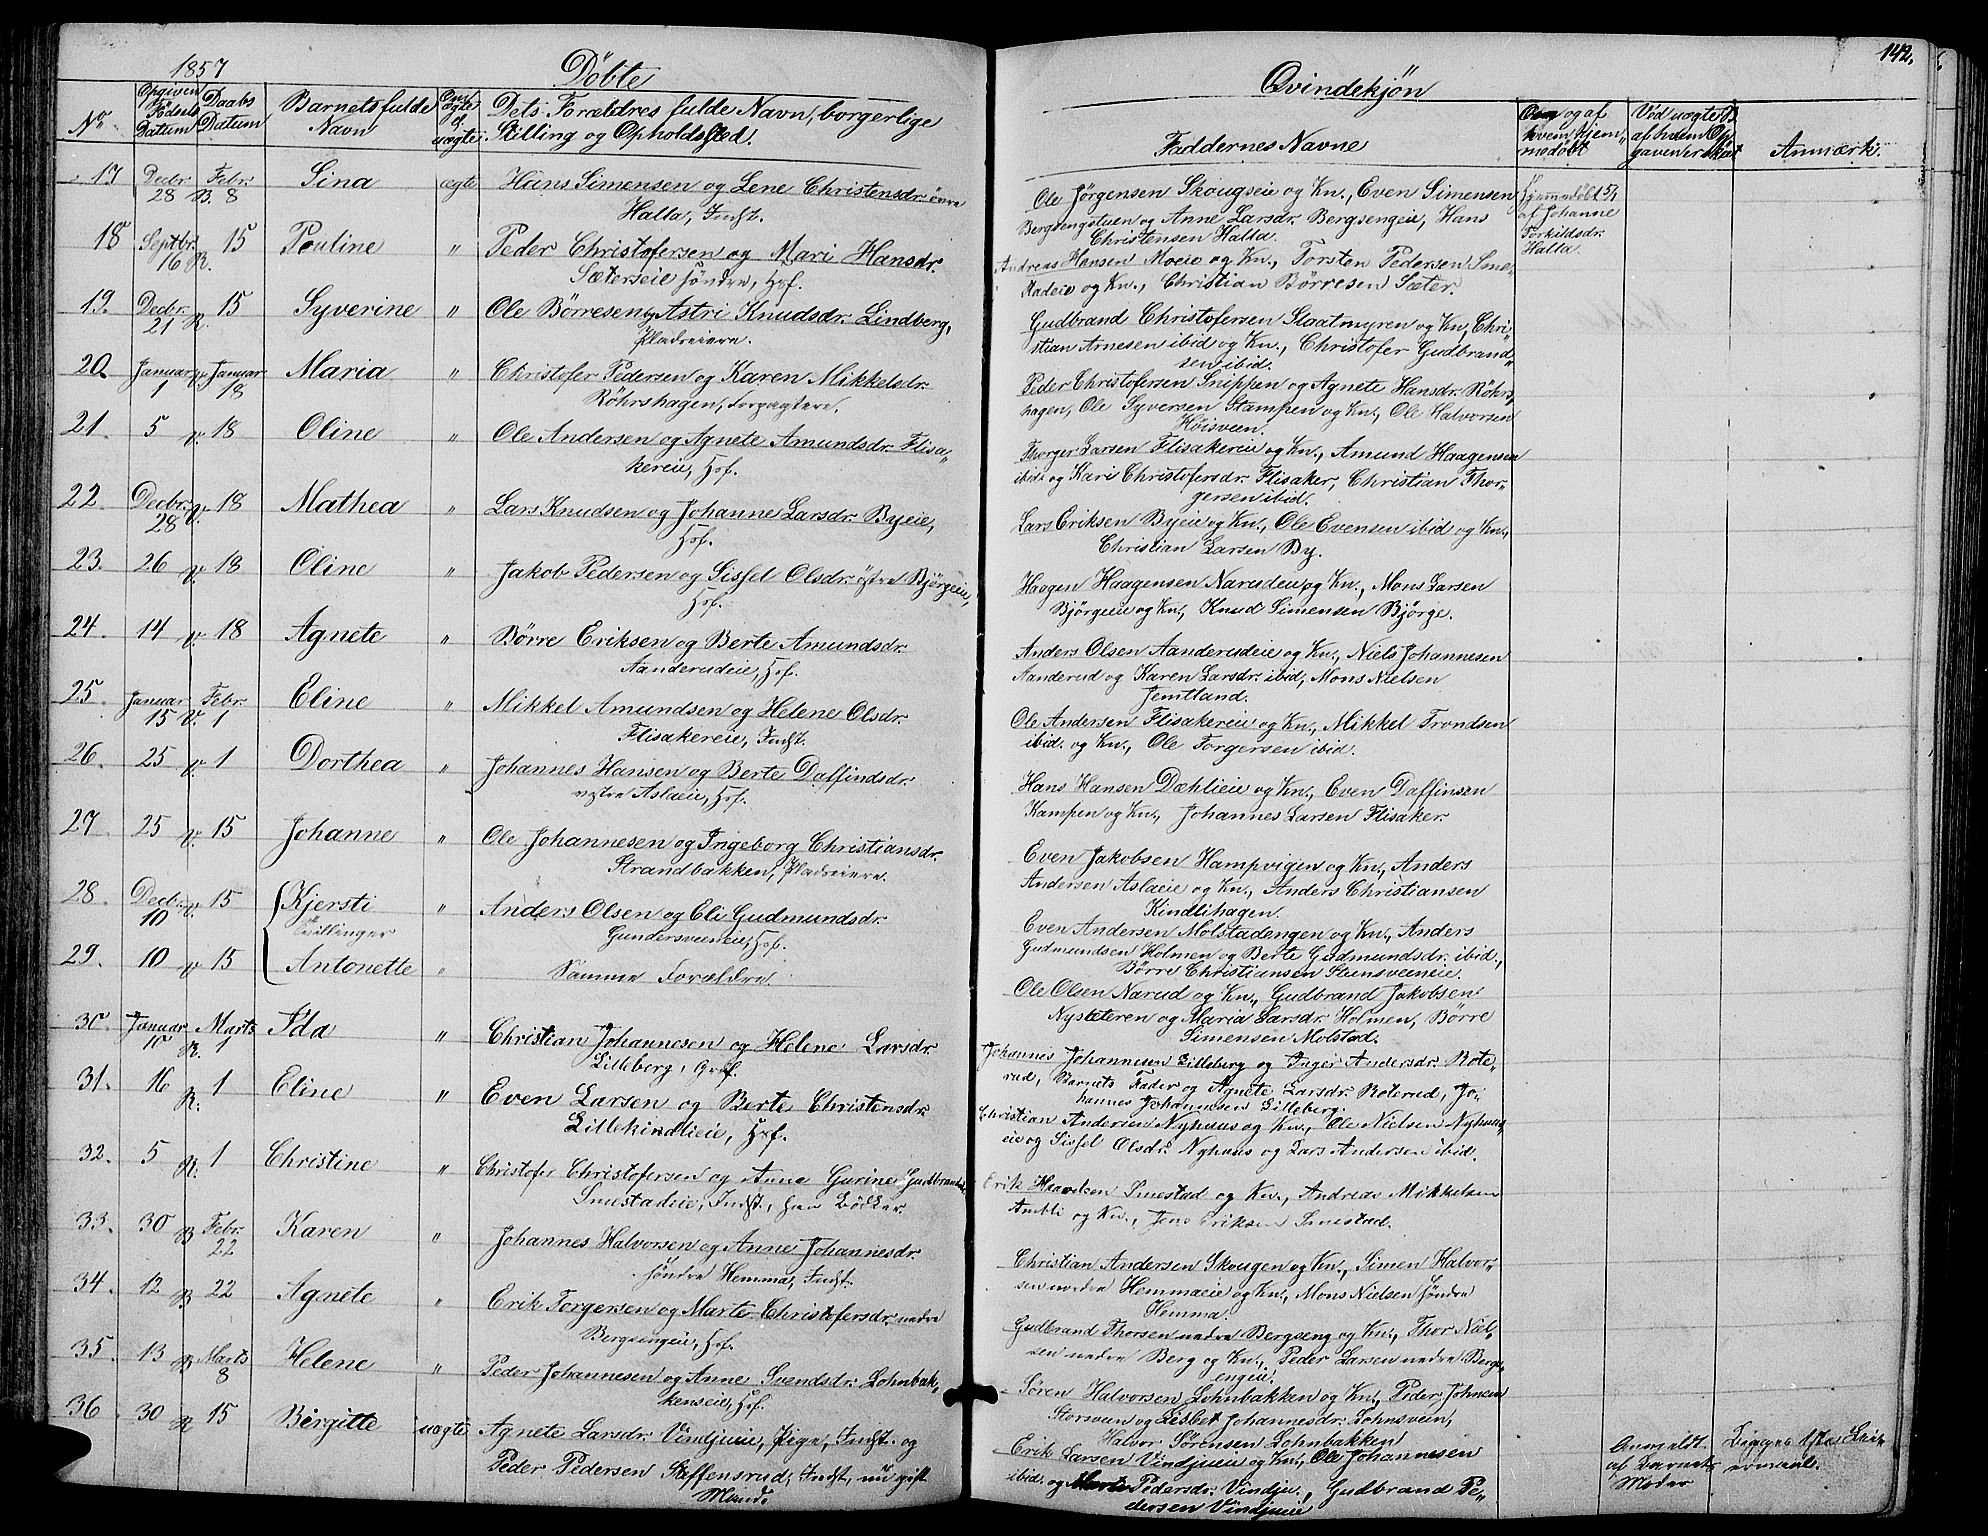 1857
Döbte
Qvindekjön
142.
No.
Opgiven Födsels Datum
Daabs Datum
Barnets fulde Navn
Om ægte el. uægte
Dets Forældres fulde Navn, borgerlige Stilling og Opholdssted.
Faddernes Navne
Om og af hvem hjemmedöbt
Ved uægte B. af hvem Opgaven er skeet
Anmærk.
17 Decbr. 28 B. Febr. 8 Sina ægte Hans Simensen og Lene Christensdr. övre
Halla, Indst.
Ole Jörgensen Skougseie og Kn., Even Simensen
Bergsengstuen og Anne Larsdr. Bergsengeie, Hans
Christensen Halla.
Hjemmedöbt 5/1
af Johanne
Torkildsdr.
Halla.
18 Septbr. 16 R. 15 Pauline " Peder Christofersen og Mari Hansdr.
Sæterseie söndre, Hsf.
Andreas Hansen Moeie og Kn., Torsten Pedersen Sme-
stadeie og Kn., Christian Börresen Sæter.
19. Decbr. 21 R. 15 Syverine " Ole Börresen og Astri Knudsdr. Lindberg,
Pladseiere.
Gudbrand Christofersen Slaatmyren og Kn., Chri-
stian Arnesen ibid og Kn., Christofer Gudbrand-
sen ibid.
20. Januar 1 V. Januar 18 Maria " Christofer Pedersen og Karen Mikkelsdr.
Röhrshagen, Forpagtere.
Peder Christofersen Snippen og Agnete Hansdr. Röhrs-
hagen, Ole Syversen Stampen og Kn., Ole Halvorsen
Höisveen.
21. 5 V. 18 Oline " Ole Andersen og Agnete Amundsdr. Flisa-
kereie, Hsf.
Thorger Larsen Flisakereie og Kn., Amund Haagensen
ibid. og Kari Christofersdr. Flisaker, Christian Thor-
gersen ibid.
22. Decbr. 28 V. 18 Mathea " Lars Knudsen og Johanne Larsdr. Byeie,
Hsf.
Lars Eriksen Byeie og Kn., Ole Evensen ibid og Kn.,
Christian Larsen By.
23. 26 V. 18 Oline " Jakob Pedersen og Sissel Olsdr. östre Björgeie,
Hsf.
Haagen Haagensen Narudeie og Kn., Mons Larsen
Björgeeie og Kn., Knud Simensen Bjørge.
24. 14 V. 18 Agnete " Börre Eriksen og Berte Amundsdr.
Aanderudeie, Hsf.
Anders Olsen Aanderudeie og Kn., Niels Johannesen
Aanderud og Karen Larsdr. ibid, Mons Nielsen
Jemtland.
25. Januar 15 V. Febr. 1 Eline " Mikkel Amundsen og Helene Olsdr.
Flisakereie, Indst.
Ole Andersen Flisakereie og Kn., Mikkel Trondsen
ibid. og Kn., Ole Torgersen ibid.
26. 25 V. 1 Dorthea " Johannes Hansen og Berte Daffindsdr.
vestre Aslaeie, Hsf.
Hans Hansen Dæhlieie og Kn., Even Daffinsen
Kampen og Kn., Johannes Larsen Flisaker.
27 25 V. 15 Johanne " Ole Johannesen og Ingeborg Christiansdr.
Strandbakken, Pladseiere.
Even Jakobsen Hampvigen og Kn., Anders
Andersen Aslaeie og Kn., Anders Christiansen
Kindlihagen.
28 Decbr. 10 V. 15 Kjersti " Anders Olsen og Eli Gudmundsdr.
Tvillinger
Gundersveeneie, Hsf.
Even Andersen Molstadengen og Kn., Anders
Gudmundsen Holmen og Berte Gudmundsdr. ibid.,
Börre Christiansen Steensveeneie.
29. 10 V. 15 Antonette " Samme Forældre.
Ole Olsen Narud og Kn., Gudbrand Jakobsen
Nyseteren og Maria Larsdr. Holmen, Börre
Simensen Molstad.
30 Januar 10 R. Marts 1 Ida " Christian Johannesen og Helene Larsdr.
Lilleberg, Grf.
Johannes Johannesen Lilleberg og Inger Andersdr. Rote-
rud, Barnets Fader og Agnete Larsdr. Roterud, Jo-
hannes Johannesen Lilleberg.
31. 16 R. 1 Eline " Even Larsen og Berte Christensdr.
Lillekindlieie, Hsf.
Christian Andersen Nyhuus og Kn., Ole Nielsen Nyhuus-
eie og Sissel Olsdr. Nyhuus og Lars Andersen ibid.
32. 5 R. 1 Christine " Christofer Christofersen og Anne Gurine Gudbrandsdr.
Smestadeie, Indst., han Bödker.
Erik Haavelsen Smestad og Kn., Andreas Mikkelsen
Ambli og Kn., Jens Eriksen Smestad.
33. 30 B Febr. 22 Karen " Johannes Halvorsen og Anne Johannesdr.
söndre Hemma, Indst.
Christian Andersen Skougen og Kn., Simen Halvor-
sen nordre Hemmaeie og Kn., Mons Nielsen söndre
Hemma.
34. 12 B 22 Agnete " Erik Torgersen og Marte Christofersdr. nedre
Bergsengeie, Hsf.
Gudbrand Thorsen nedre Bergseng og Kn., Thor Niel-
sen nedre Berg og Kn., Peder Larsen nedre Bergs-
engeie.
35. 13 R Marts 8 Helene " Peder Johannesen og Anne Svendsdr. Lohnbak-
kenseie, Hsf.
Sören Halvorsen Lohnbakken og Kn., Peder Johnsen
Storsveen og Lisbet Johannesdr. Lohnsveen,
Halvor Sörensen Lohnbakken
36. 30 R 15 Birgitte uægte Agnete Larsdr. Vindjueie, Pige, Indst. og
Peder Pedersen Steffensrud, Indst., nu gift
Mand.
Erik Larsen Vindjueie og Kn., Ole Johannesen
ibid. og Marte Pedersdr. Vindju., Gudbrand Pe-
dersen Vindjueie
Anmeldt
af Barnets
Moder